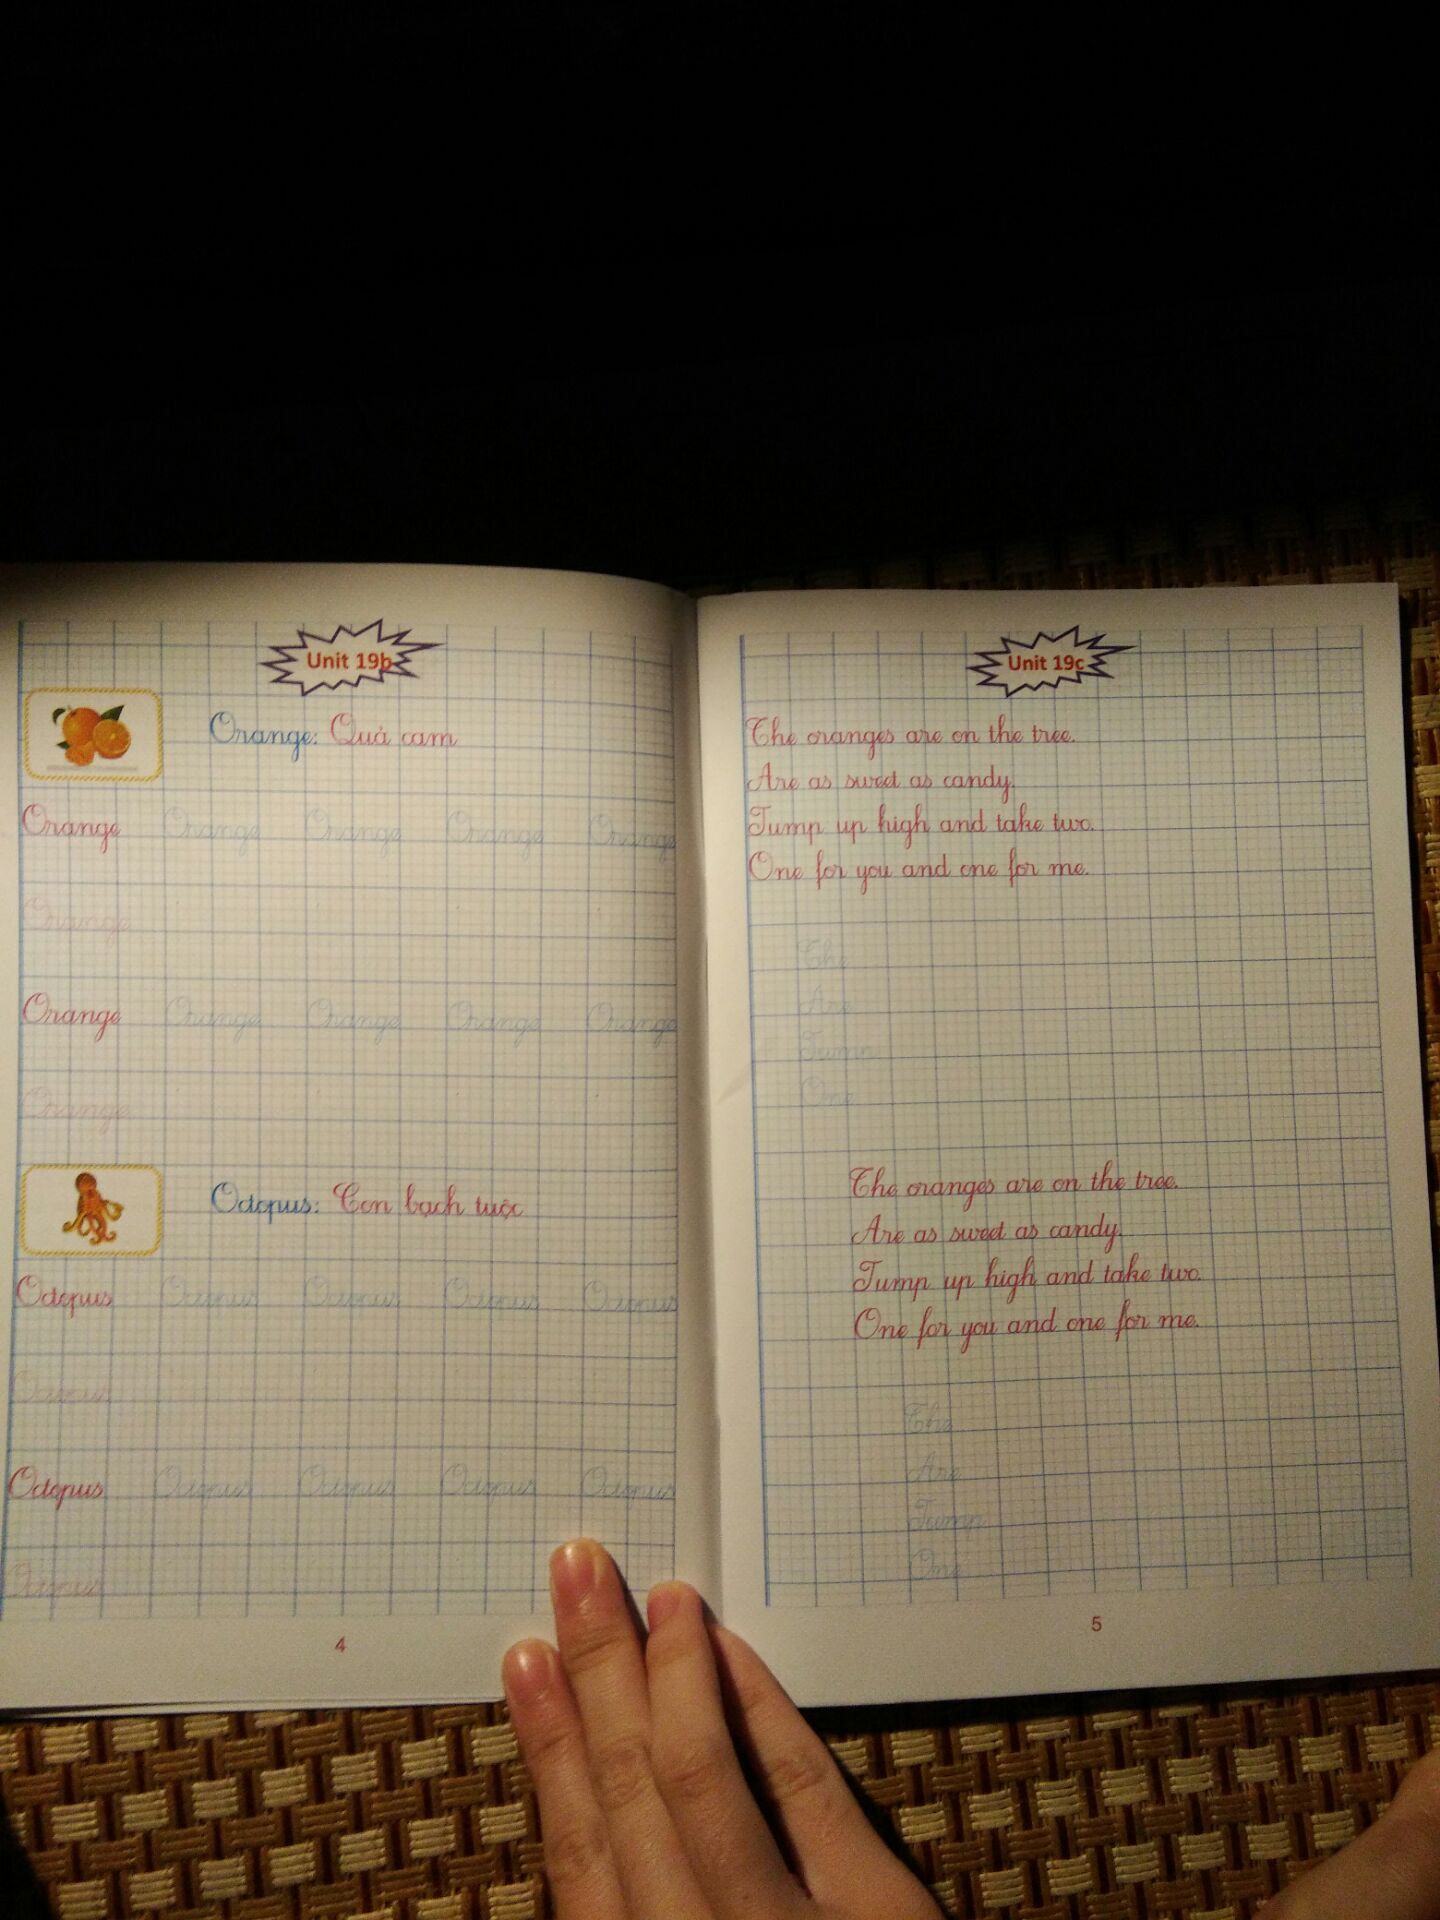 Unit 19b
Orange: Quả cam
Orange Orange Orange Orange Orange
Orange
Orange Orange Orange Orange Orange
Orange
Octopus: Con bạch tuộc
Octopus Octopus Octopus Octopus Octopus
Octopus
Octopus Octopus Octopus Octopus Octopus
Octopus
4
Unit 19c
The oranges are on the tree.
Are as sweet as candy.
Jump up high and take two.
One for you and one for me.
The
Are
Jump
One
The oranges are on the tree.
Are as sweet as candy.
Jump up high and take two.
One for you and one for me.
The
Are
Jump
One
5